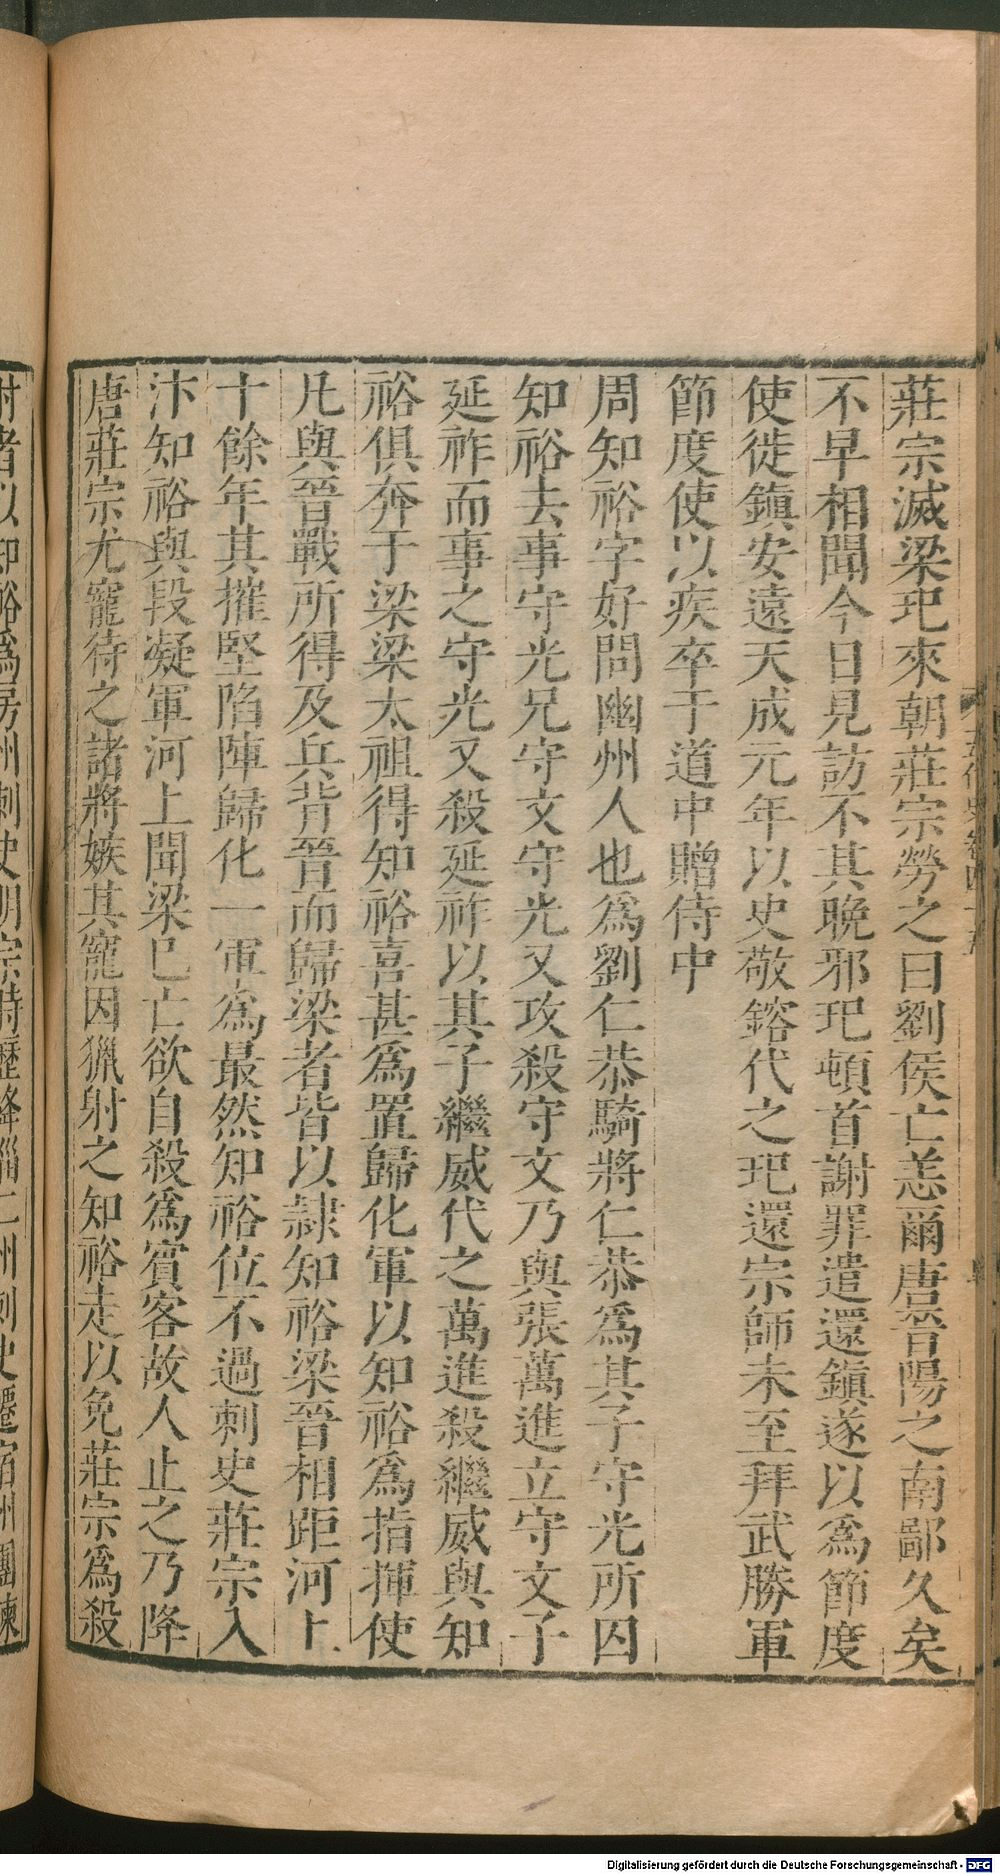 莊宗滅梁玘來朝莊宗勞之曰劉侯亡恙爾唐晉陽之南鄙久矣
不早相聞今日見訪不其晚邪玘頓首謝罪遣還鎮遂以爲節度
使徙鎮安遠天成元年以史敬鎔代之玘還宗師未至拜武勝軍
節度使以疾卒于道中贈侍中
周知裕字好問幽州人也爲劉仁恭騎將仁恭爲其子守光所囚
知裕去事守光兄守文守光又攻殺守文乃與張萬進立守文子
延祚而事之守光又殺延祚以其子繼威代之萬進殺繼威與知
裕俱奔于梁梁太祖得知裕喜甚爲置歸化軍以知裕爲指揮使
凡與晉戰所得及兵背晉而歸梁者皆以隷知裕梁晉相距河上
十餘年其摧堅陷陣歸化一軍爲最然知裕位不過刺史莊宗入
汴知裕與段凝軍河上聞梁已亡欲自殺爲賓客故人止之乃降
唐莊宗尤寵待之諸將嫉其寵因獵射之知裕走以免莊宗爲殺
射者以知裕爲房州刺史明宗時歷絳淄二州刺史遷宿州團練
Digitalisierung gefördert durch die Deutsche Forschungsgemeinschaft - DFG